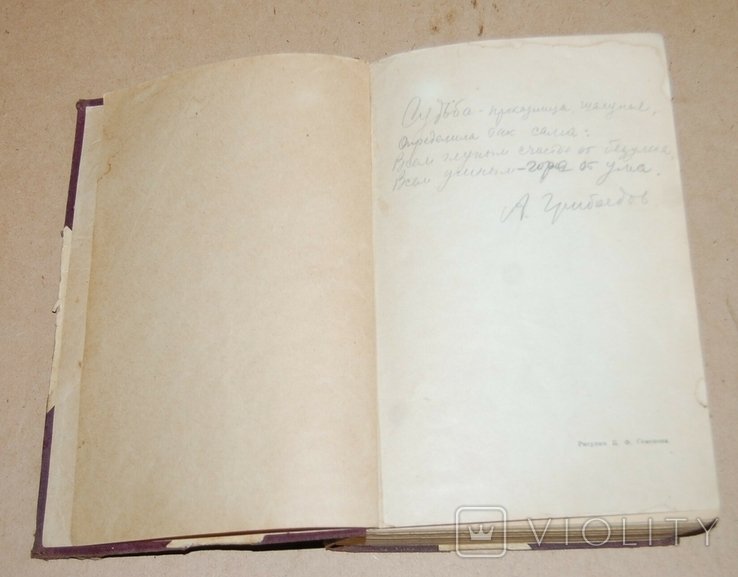 Судьба - проказница, шалунья,
Определила так сама:
Всем глупым счастье от безумья,
Всем умным - горе от ума.
А. Грибоедов
Рисунки Ф. Семенова
VIOLITY